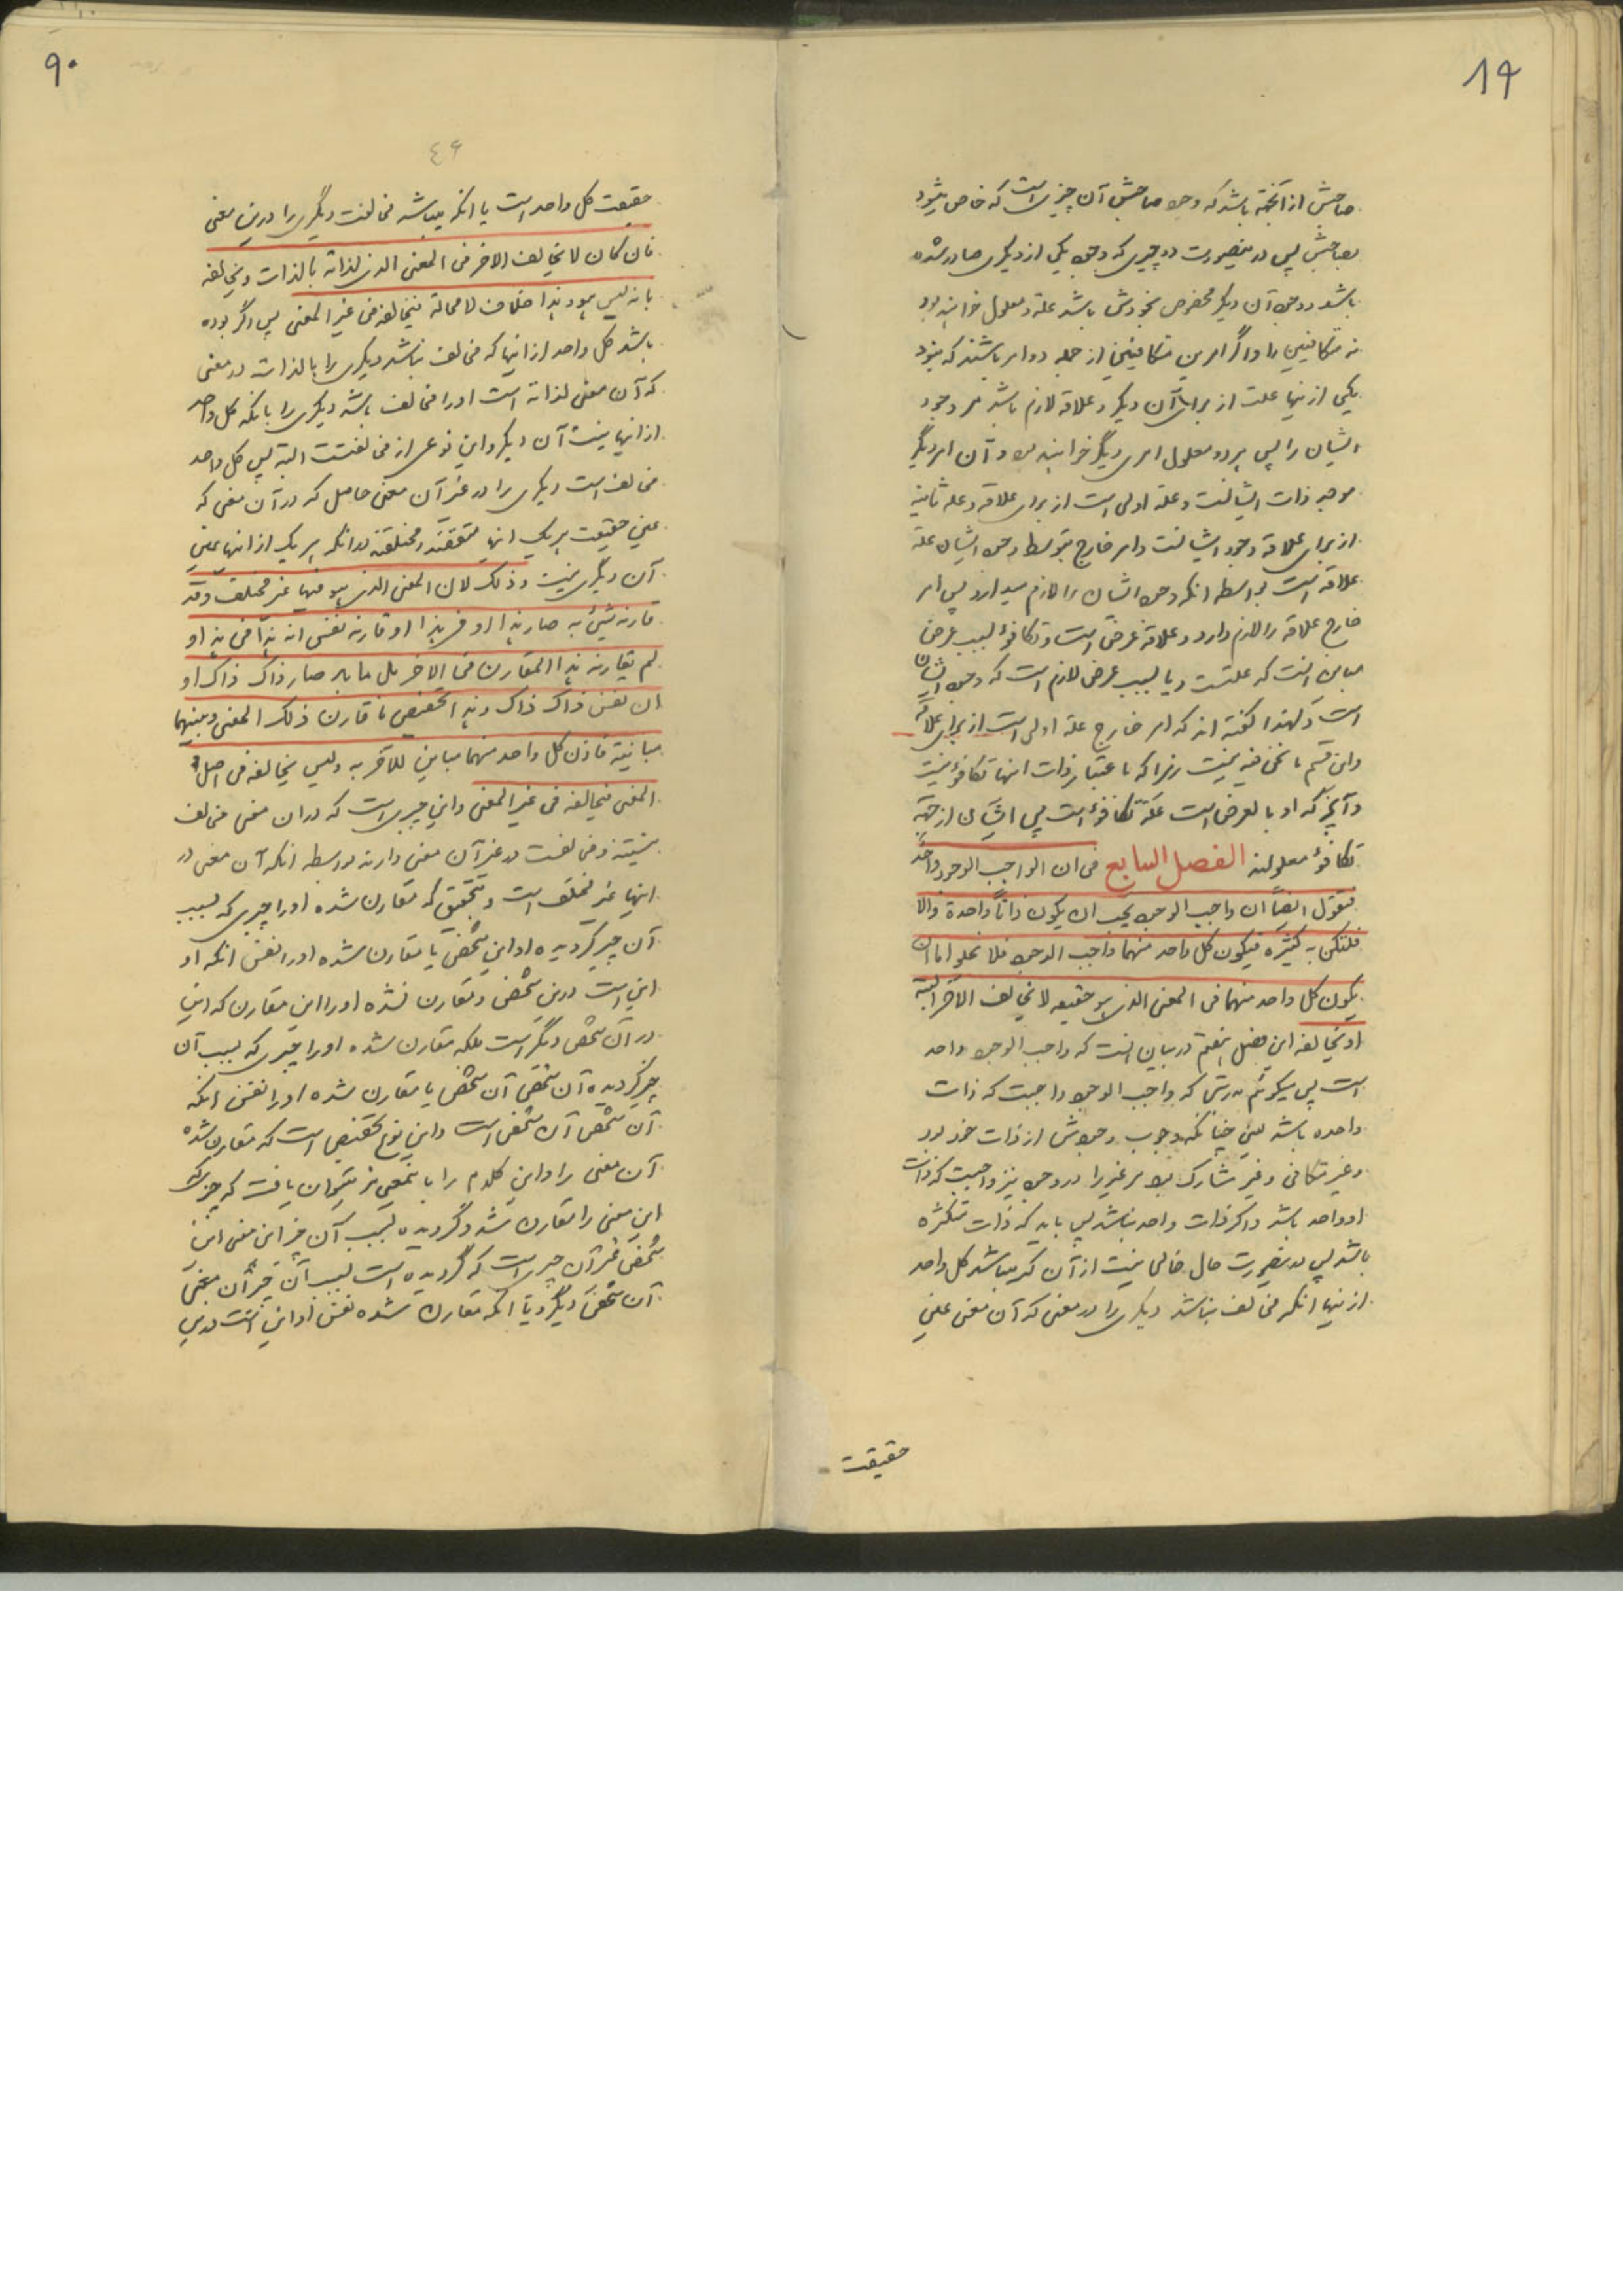 19
صاحبش از آنجهة باشد که وجود صاحبش آن چیزی است که خاص میشود
بصاحبش پس درینصورت دو چیزی که وجود یکی از دیگری صادر شده
باشد و وجود آن دیگر مخصوص بخودش باشد علة و معلول خواهند بود
نه متکافئین را و اگر امرین متکافئین از جمله دو امر باشند که نبود
یکی ازینها علت از برای آن دیگر و علاقه لازم باشد مر وجود
ایشان را پس هر دو معلول امری دیگر خواهند بود و آن امر دیگر
موجد ذات ایشانست و علة اولی است از برای علاقه و علة ثانیه
از برای علاقه وجود ایشانست و امر خارج بتوسط وجود ایشان علة
علاقه است بواسطه انکه وجود ایشان را لازم میدارد پس امر
خارج علاقه را لازم دارد و علاقه عرضی است و تکافؤ بسبب عرض
مباین است که علتست و یا بسبب عرض لازم است که وجود ایشان
است و لهذا گفته اند که امر خارج علة اولی است از برای علاقه
و این قسم ما نحن فیه نیست زیرا که باعتبار ذات اینها تکافؤ نیست
و آنچه که او بالعرض است علة تکافؤ است پس ایشان از جهة
تکافؤ معلولند الفصل السابع فی ان الواجب الوجود واحد
فنقول ایضاً ان واجب الوجود یجب ان یکون ذاتاً واحدة والا
فلتکن به کثیرة فیکون کل واحد منهما واجب الوجود فلا یخلو اما ان
یکون کل واحد منهما فی المعنی الذی هو حقیقه لا یخالف الآخر البتة
او یخالفه این فصل هفتم در بیان انست که واجب الوجود واحد
است پس میگوئم بدرستی که واجب الوجود واجبت که ذات
واحده باشد یعنی چنانکه وجوب وجودش از ذات خود بود
و غیر متکافی و غیر مشارک بود مر غیر را در وجود نیز واجبست که ذات
او واحد باشد و اگر ذات واحد نباشد پس باید که ذات متکثره
باشد پس درینصورت حال خالی نیست از آن که میباشد کل واحد
ازینها انکه مخالف نباشد دیگری را در معنی که آن معنی عین
حقیقت
90
٤٦
حقیقت کل واحد است یا انکه میباشد مخالفت دیگری را درین معنی
فان کان لا یخالف الاخر فی المعنی الذی لذاته بالذات و یخالفه
بانه لیس هو هذا خلاف لا محالة فیخالفه فی غیر المعنی پس اگر بوده
باشد کل واحد از انها که مخالف نباشد دیگری را بالذات در معنی
که آن معنی لذاته است او را مخالف باشد دیگری را بانکه کل واحد
از انها نیست آن دیگر و این نوعی از مخالفتست البته پس کل واحد
مخالف است دیگری را در غیر آن معنی حاصل که در آن معنی که
عین حقیقت هر یک انها متفقند و مختلفند بدانکه هر یک از انها عین
آن دیگری نیست و ذلک لان المعنی الذی هو فیهما غیر مختلف و قد
قارنه شیئ به صار هذا او فی هذا او قارنه نفس انه هذا فی هذا و
لم یقارنه هذا المقارن فی الاخر بل ما به صار ذاک ذاک او
ان نفس ذاک ذاک و هذا تخصیص ما قارن ذلک المعنی و بینهما
مباینة فاذن کل واحد منهما مباین للآخر به و لیس یخالفه فی اصل
المعنی فیخالفه فی غیر المعنی و این چیزی است که در ان معنی مخالف
نیستند و مخالفت در غیر آن معنی دارند بواسطه انکه آن معنی در
اینها غیر مختلف است و بتحقیق که مقارن شده او را چیزی که بسبب
آن چیز گردیده او این شخص یا مقارن شده او را نفس انکه او
این است درین شخص و مقارن نشده او را این مقارن که این
در آن شخص دیگر است بلکه مقارن شده او را چیزی که بسبب آن
چیز گردیده آن شخص آن شخص یا مقارن شده او را نفس انکه
آن شخص آن شخص است و این نوع تخصیص است که مقارن شده
آن معنی را و این کلام را باینمعنی نیز میتوان یافت که چیزیکه
این معنی را مقارن شد و گردیده بسبب آن چیز این معنی این
شخص غیر آن چیزی است که گردیده است بسبب آن چیز آن معنی
آن شخص دیگر و یا انکه مقارن شده نفس او این است درین